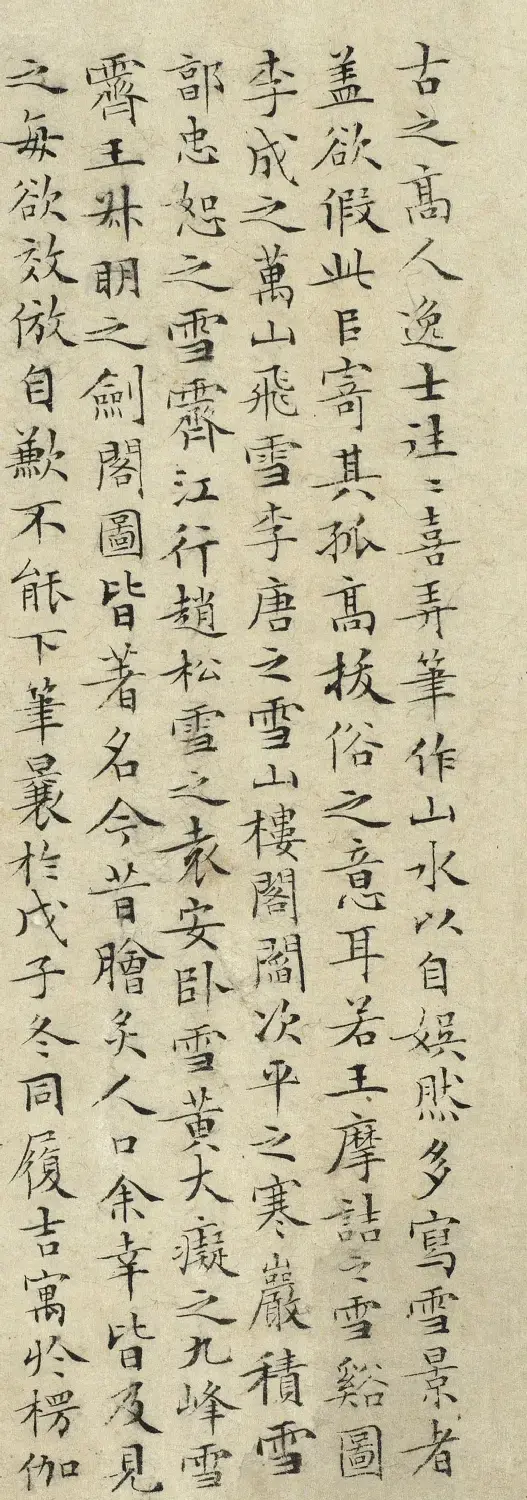 古之高人逸士往往喜弄筆作山水以自娛然多寫雪景者
蓋欲假此以寄其孤高拔俗之意耳若王摩詰之雪谿圖
李成之萬山飛雪李唐之雪山樓閣閻次平之寒巖積雪
郭忠恕之雪霽江行趙松雪之袁安卧雪黃大癡之九峰雪
霽王叔明之劍閣圖皆著名今昔膾炙人口余幸皆及見
之每欲效倣自歉不能下筆曩於戊子冬同履吉寓於楞伽